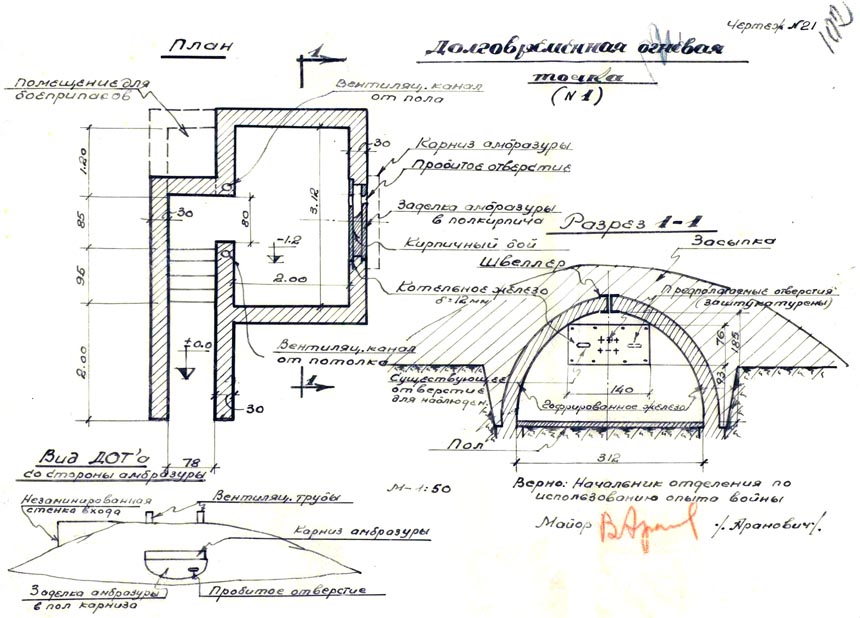 Чертеж №21
102
План
Долговременная огневая
точка
(№1)
1
Помещение для
боеприпасов
Вентиляц. канал
от пола
30
Карниз амбразуры
Пробитое отверстие
1.20
3.12
Заделка амбразуры
в полкирпича
30
85
80
Разрез 1-1
Кирпичный бой
Засыпка
-1.2
Швеллер
95
2.00
Котельное железо
б=12мм
Предполагаемые отверстия
(заштукатурены)
±0.0
Вентиляц. канал
от потолка
76
185
93
2.00
1
Существующее
отверстие
для наблюден.
140
Гофрированное железо
30
Пол
78
312
Вид ДОТ'а
со стороны амбразуры
М-1:50
Верно: Начальник отделения по
использованию опыта войны
Незаминированная
стенка входа
Вентиляц. трубы
Майор
/Аранович/.
Карниз амбразуры
Заделка амбразуры
в пол карниза
Пробитое отверстие